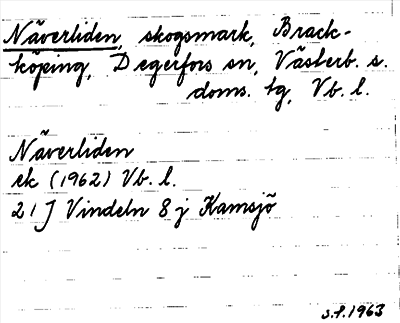 Näverliden, skogsmark, Brack-
köping, Degerfors sn, Västerb. s.
doms. tg, Vb. l.
Näverliden
ek (1962) Vb. l.
21 J Vindeln 8 j Kamsjö
s.f. 1963